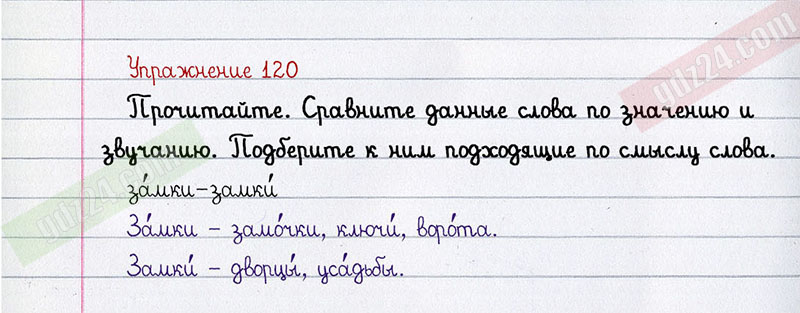 gdz24.com
Упражнение 120
Прочитайте. Сравните данные слова по значению и
звучанию. Подберите к ним подходящие по смыслу слова.
за́мки-замки́
За́мки - замо́чки, ключи́, воро́та.
Замки́ - дворцы́, уса́дьбы.
gdz24.com